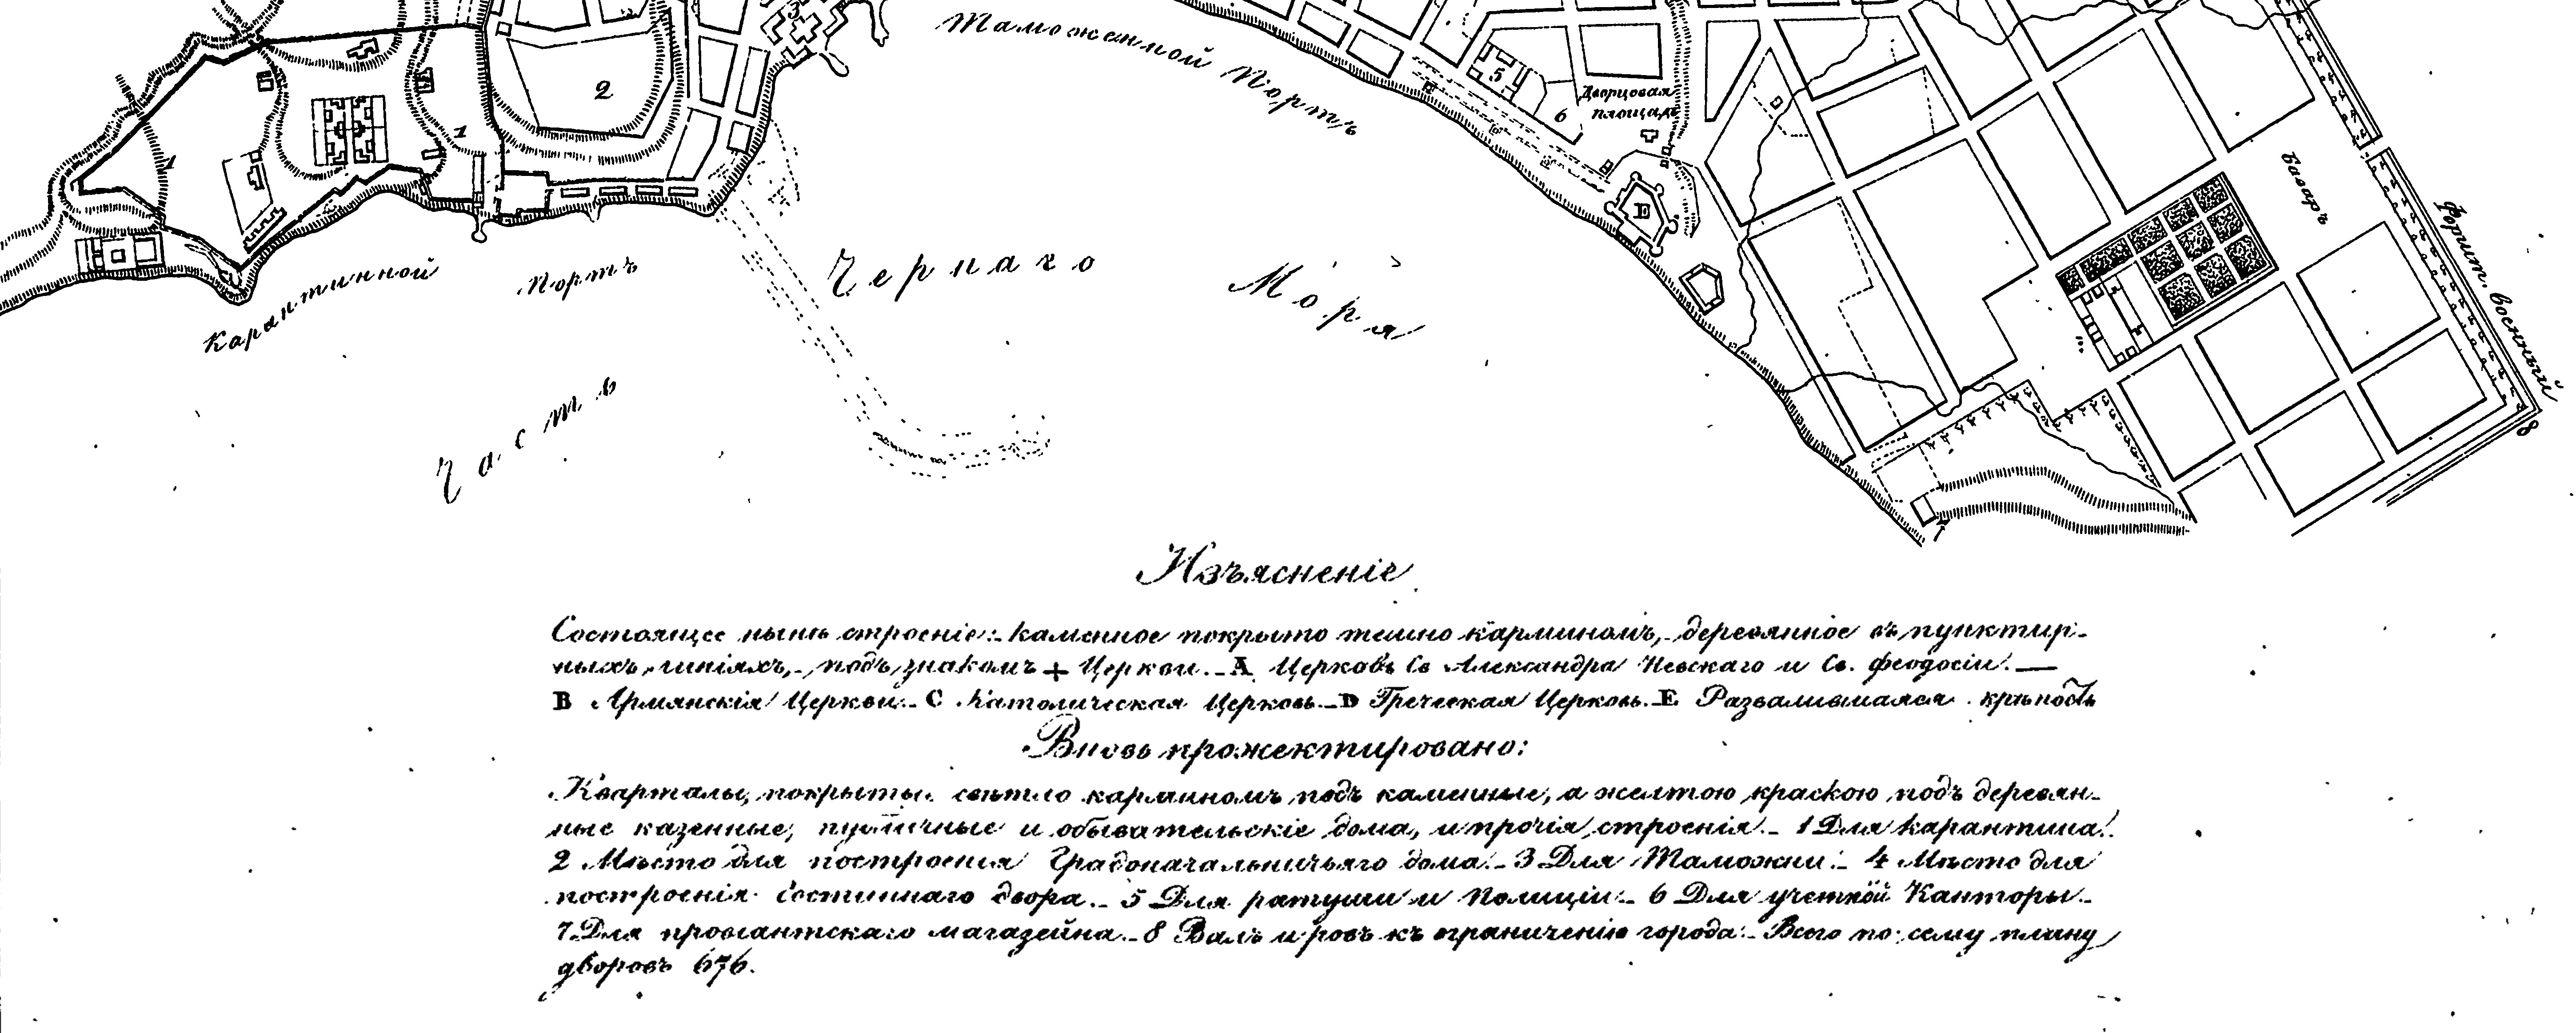 Таможенной Портъ
3
2
5
6
Дворцовая
площадь
1
1
Е
Базаръ
Форшт. военный
Карантинной Портъ
Чернаго Моря
Часть
8
7
Изъясненіе
Состоящее нынѣ строеніе:- каменное покрыто темно карминомъ,- деревянное въ пунктир-
ныхъ линіяхъ,- подъ знакомъ + Церкви.- А Церковь Св Александра Невскаго и Св. Феодосіи.—
В Армянскія Церкви.- С Католическая Церковь.- D Греческая Церковь.- Е Развалившаяся крѣпость
Вновь прожектировано:
Кварталы, покрыты свѣтло карминомъ подъ каменные, а желтою краскою подъ деревян-
ные казенные, публичные и обывательскіе дома, и прочія строенія.- 1 Для карантина.
2 Мѣсто для построенія Градоначальничьяго дома.- 3 Для Таможни.- 4 Мѣсто для
построенія Гостиннаго двора.- 5 Для ратуши и Полиціи.- 6 Для учетной Канторы.-
7 Для провіантскаго магазейна.- 8 Валъ и ровъ къ ограниченію города.- Всего по сему плану
дворовъ 676.